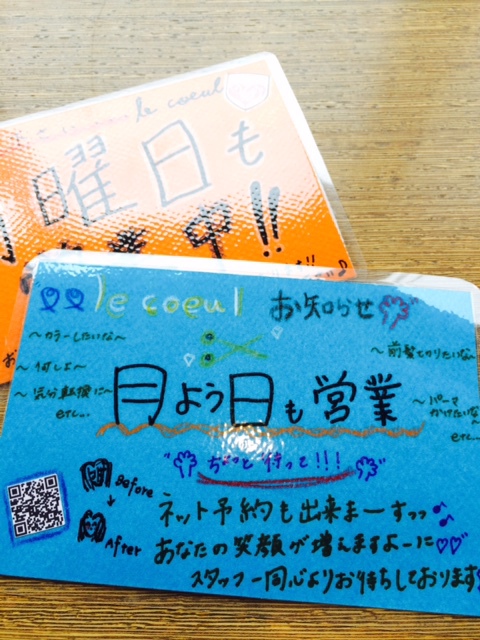 le coeul
月曜日も
営業中!!
le coeul お知らせ
～カラーしたいな～
～何しよ～
～気分転換に～
etc...
～前髪切りたいな～
～パーマ
かけたいな～
etc...
月よう日も営業
ちょっと待って!!!
Before
↓
After
ネット予約も出来まーすっっ♪
あなたの笑顔が増えますよーに♡♡
スタッフ一同心よりお待ちしております